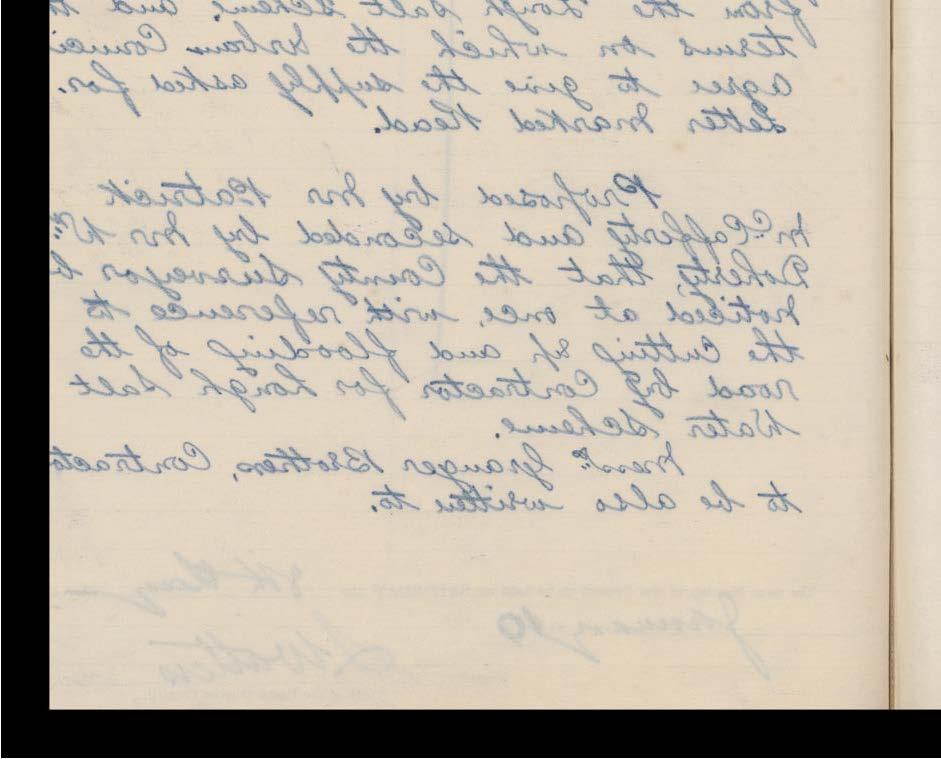 from the Lough Salt Scheme. and to
terms on which the Urban Counci
agree to give the supply asked for.
Letter marked Read.
Proposed by Mr Patrick
McCafferty and seconded by Mr Wm
Doherty, that the County Surveyor b
noticed at once, with reference to
the cutting up and flooding of the
road by Contractor for Lough Salt
Water Scheme.
Messrs Granger Brothers, Contracto
to be also written to.
8th day
January 10
J Watters